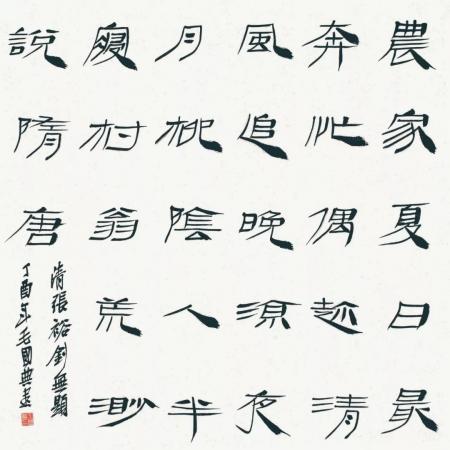 農家夏日最
奔忙偶趂清
風追晚涼夜
月柳陰人半
村翁荒渺
說隋唐
清張裕釗無題
丁酉年毛國典書